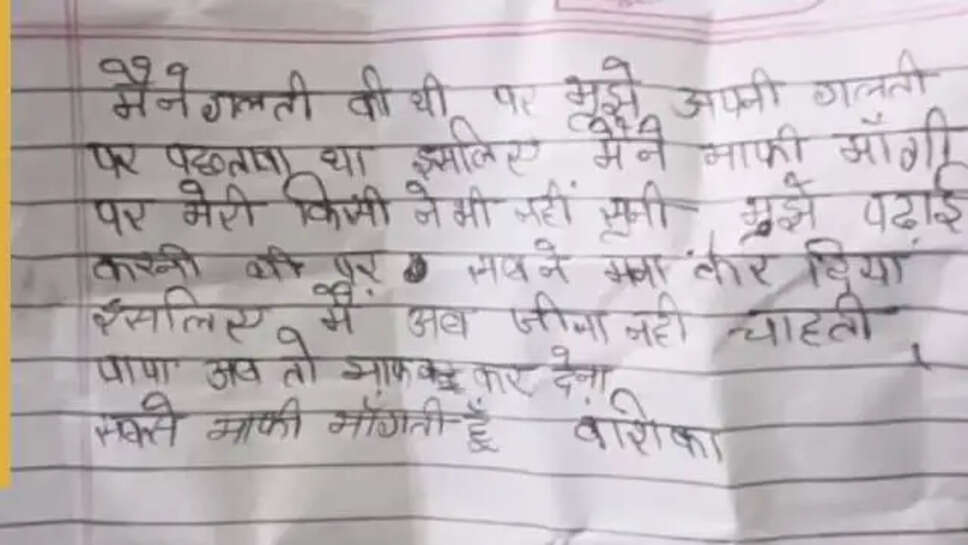 मैंने गलती की थी पर मुझे अपनी गलती
पर पछतावा था इसलिए मैंने माफी माँगी
पर मेरी किसी ने भी नहीं सुनी मुझे पढाई
करनी थी पर सबने मना कर दिया
इसलिए मैं अब जीना नही चाहती
पापा अब तो माफ कर देना
सबसे माफी माँगती हूँ वंशिका